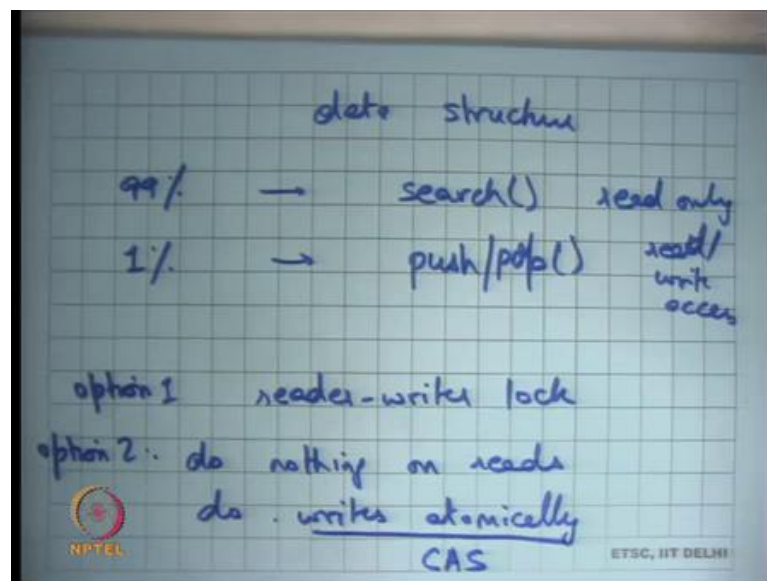 data structure
99% → search() read only
1% → push/pop() read/
write
access
option 1 reader-writer lock
option 2: do nothing on reads
do writes atomically
CAS
NPTEL
ETSC, IIT DELHI